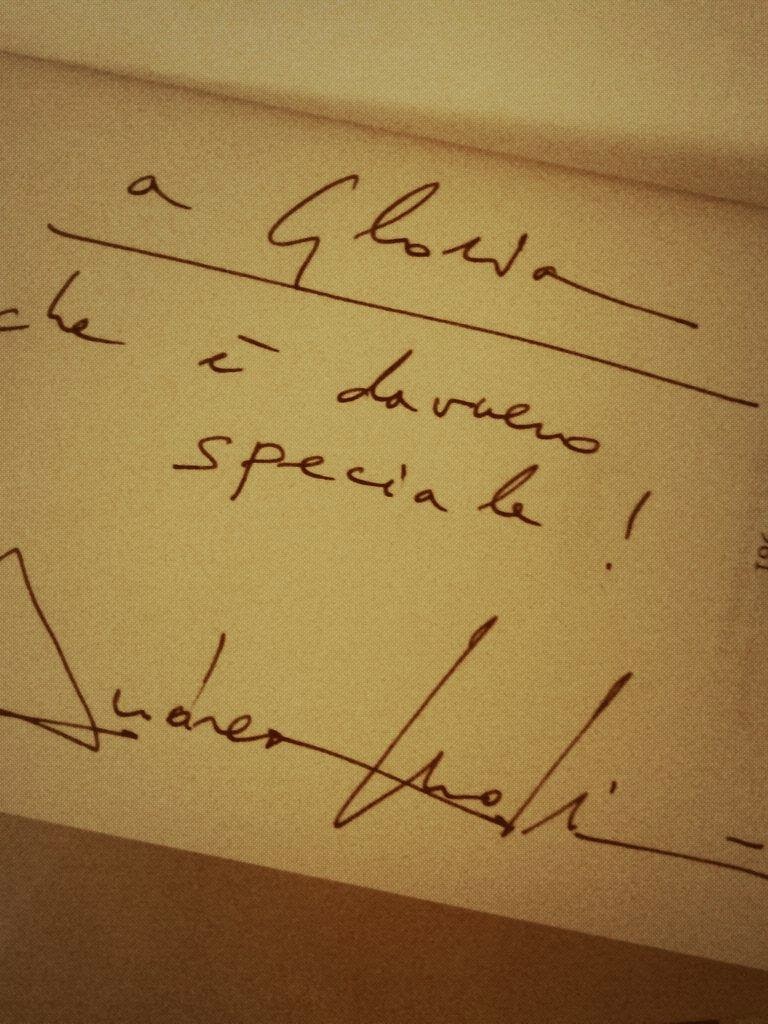 a Gloria
che è davvero
speciale !
Andrea